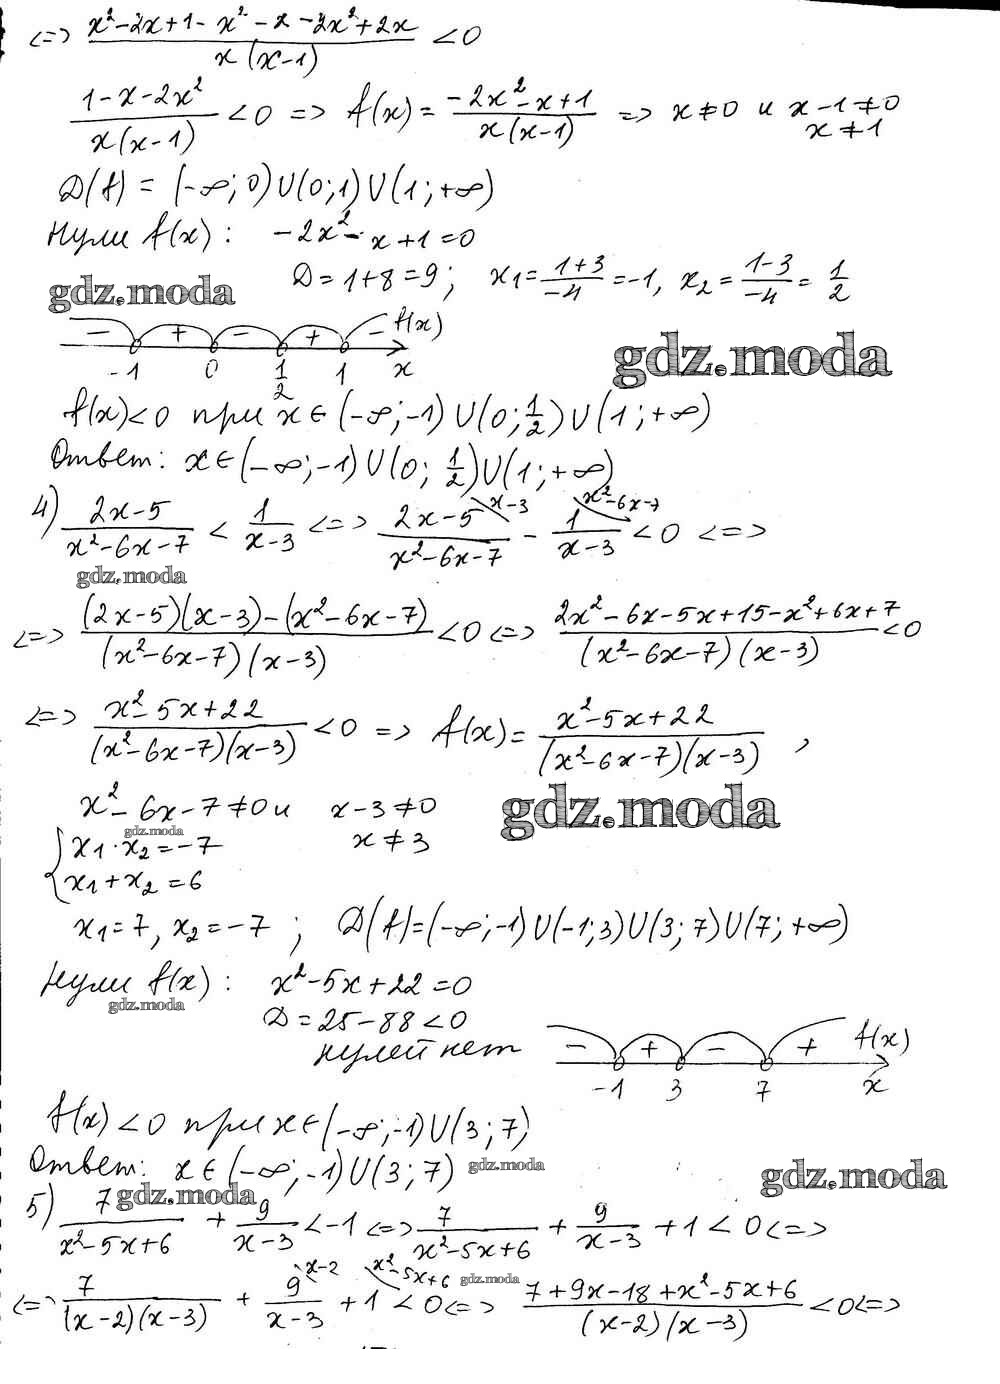 <=> (x²-2x+1-x²-x-2x²+2x)/(x(x-1)) <0
(1-x-2x²)/(x(x-1)) <0 => f(x) = (-2x²-x+1)/(x(x-1)) => x≠0 и x-1≠0
x≠1
D(f) = (-∞;0)U(0;1)U(1;+∞)
Нули f(x): -2x²-x+1=0
D=1+8=9; x1=(1+3)/(-4)=-1, x2=(1-3)/(-4)=1/2
gdz.moda
- + - + - f(x)
gdz.moda
-1 0 1/2 1 x
f(x)<0 при x∈(-∞;-1)U(0;1/2)U(1;+∞)
Ответ: x∈(-∞;-1)U(0;1/2)U(1;+∞)
4) (2x-5)/(x²-6x-7) < 1/(x-3) <=> (2x-5)\x-3/(x²-6x-7) - 1\x²-6x-7/(x-3) <0 <=>
gdz.moda
<=> ((2x-5)(x-3)-(x²-6x-7))/((x²-6x-7)(x-3)) <0 <=> (2x²-6x-5x+15-x²+6x+7)/((x²-6x-7)(x-3)) <0
<=> (x²-5x+22)/((x²-6x-7)(x-3)) <0 => f(x)= (x²-5x+22)/((x²-6x-7)(x-3)),
x²-6x-7≠0 и x-3≠0
gdz.moda
gdz.moda
{x1·x2=-7 x≠3
x1+x2=6
x1=7, x2=-7; D(f)=(-∞;-1)U(-1;3)U(3;7)U(7;+∞)
Нули f(x): x²-5x+22=0
gdz.moda
D=25-88<0
нулей нет
- + - + f(x)
-1 3 7 x
f(x)<0 при x∈(-∞;-1)U(3;7)
Ответ: x∈(-∞;-1)U(3;7)
gdz.moda
gdz.moda
gdz.moda
5) 7/(x²-5x+6) + 9/(x-3) <-1 <=> 7/(x²-5x+6) + 9/(x-3) +1<0 <=>
<=> 7/((x-2)(x-3)) + 9\x-2/(x-3) + 1\x²-5x+6 <0 <=> (7+9x-18+x²-5x+6)/((x-2)(x-3)) <0 <=>
gdz.moda